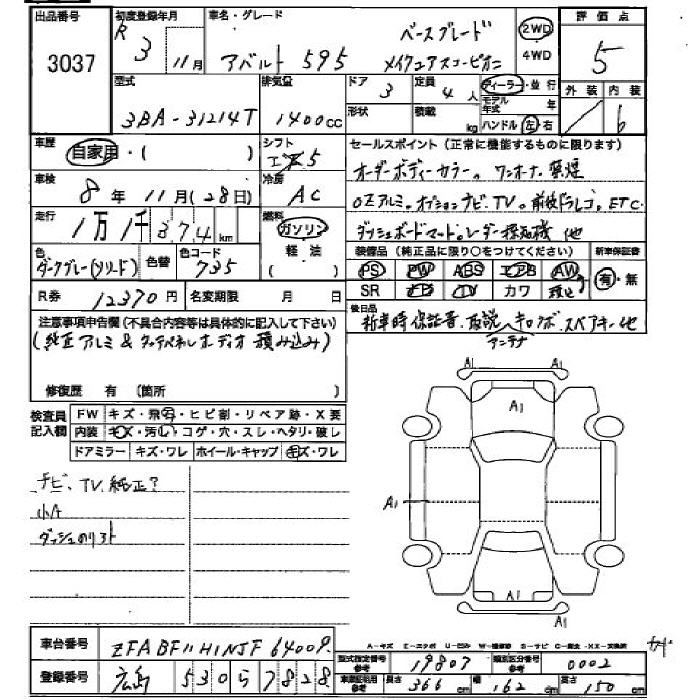 出品番号
3037
初度登録年月
R 3 11月
車名・グレード
アバルト 595
ベースグレード
メイクュアスコーピオニ
2WD
4WD
評価点
5
外装 内装
6
型式
3BA-31214T
排気量
1400cc
ドア
3
形状
定員
4人
積載
kg
ディーラー・並行
モデル年式 年
ハンドル 左・右
車歴
自家用・( )
シフト
5
車検
8年 11月(28日)
冷房
AC
走行
1万1千374km
燃料
ガソリン
軽油
( )
色
ダークグレー(ソリード)
色替
色コード
735
R券 12370円
名変期限 月 日
セールスポイント(正常に機能するものに限ります)
オーダーボディーカラー。ワンオーナ、禁煙
OZアルミ。オプションナビ、TV。前後ドラレコ。ETC
ダッシュボードマート。レーダー探知機 他
装備品(純正品に限り○をつけてください)
新車保証書
PS PW ABS エアB AW
SR カワ
有・無
後日品
新車時保証書、取説、キロンボ、スペアキー他
アンテナ
注意事項申告欄(不具合内容等は具体的に記入して下さい)
(純正アルミ & オーディオ積み込み)
修復歴 有 (箇所 )
検査員記入欄
FW キズ・飛石・ヒビ割・リペア跡・X要
内装 キズ・汚れ・コゲ・穴・スレ・ヘタリ・破レ
ドアミラー キズ・ワレ ホイール・キャップ キズ・ワレ
ナビ、TV、純正?
小A
A1 A1
A1
A1
A1
A1 A1
車台番号 ZFABF11H1NJF64009
登録番号 広島 530 ら 7828
A-キズ E-エクボ U-凹み W-補修跡 S-サビ C-腐食 XX-交換済
型式指定番号 参考 19807
類別区分番号 参考 0002
車庫証明用 参考 長さ 366cm 幅 162cm 高さ 150cm